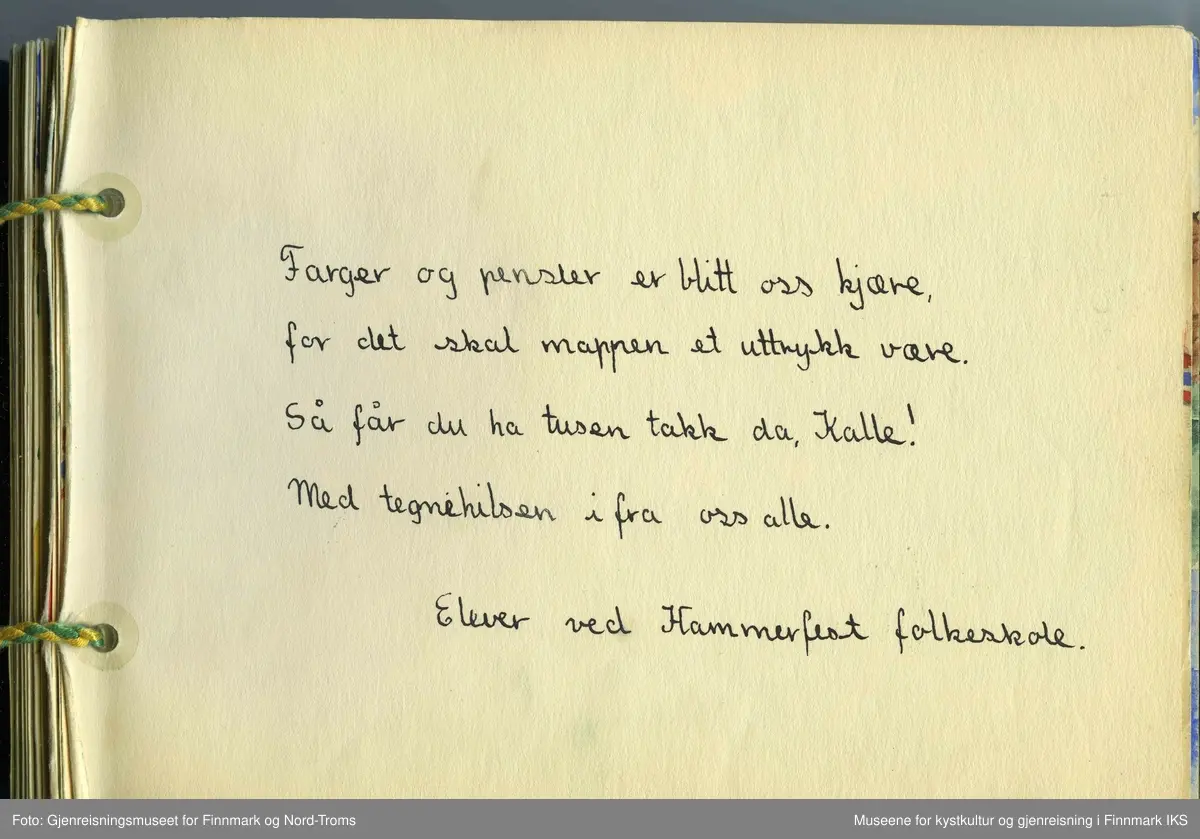 Farger og pensler er blitt oss kjære,
for det skal mappen et uttrykk være.
Så får du ha tusen takk da, Kalle!
Med tegnehilsen i fra oss alle.
Elever ved Hammerfest folkeskole.
Foto: Gjenreisningsmuseet for Finnmark og Nord-Troms
Museene for kystkultur og gjenreisning i Finnmark IKS